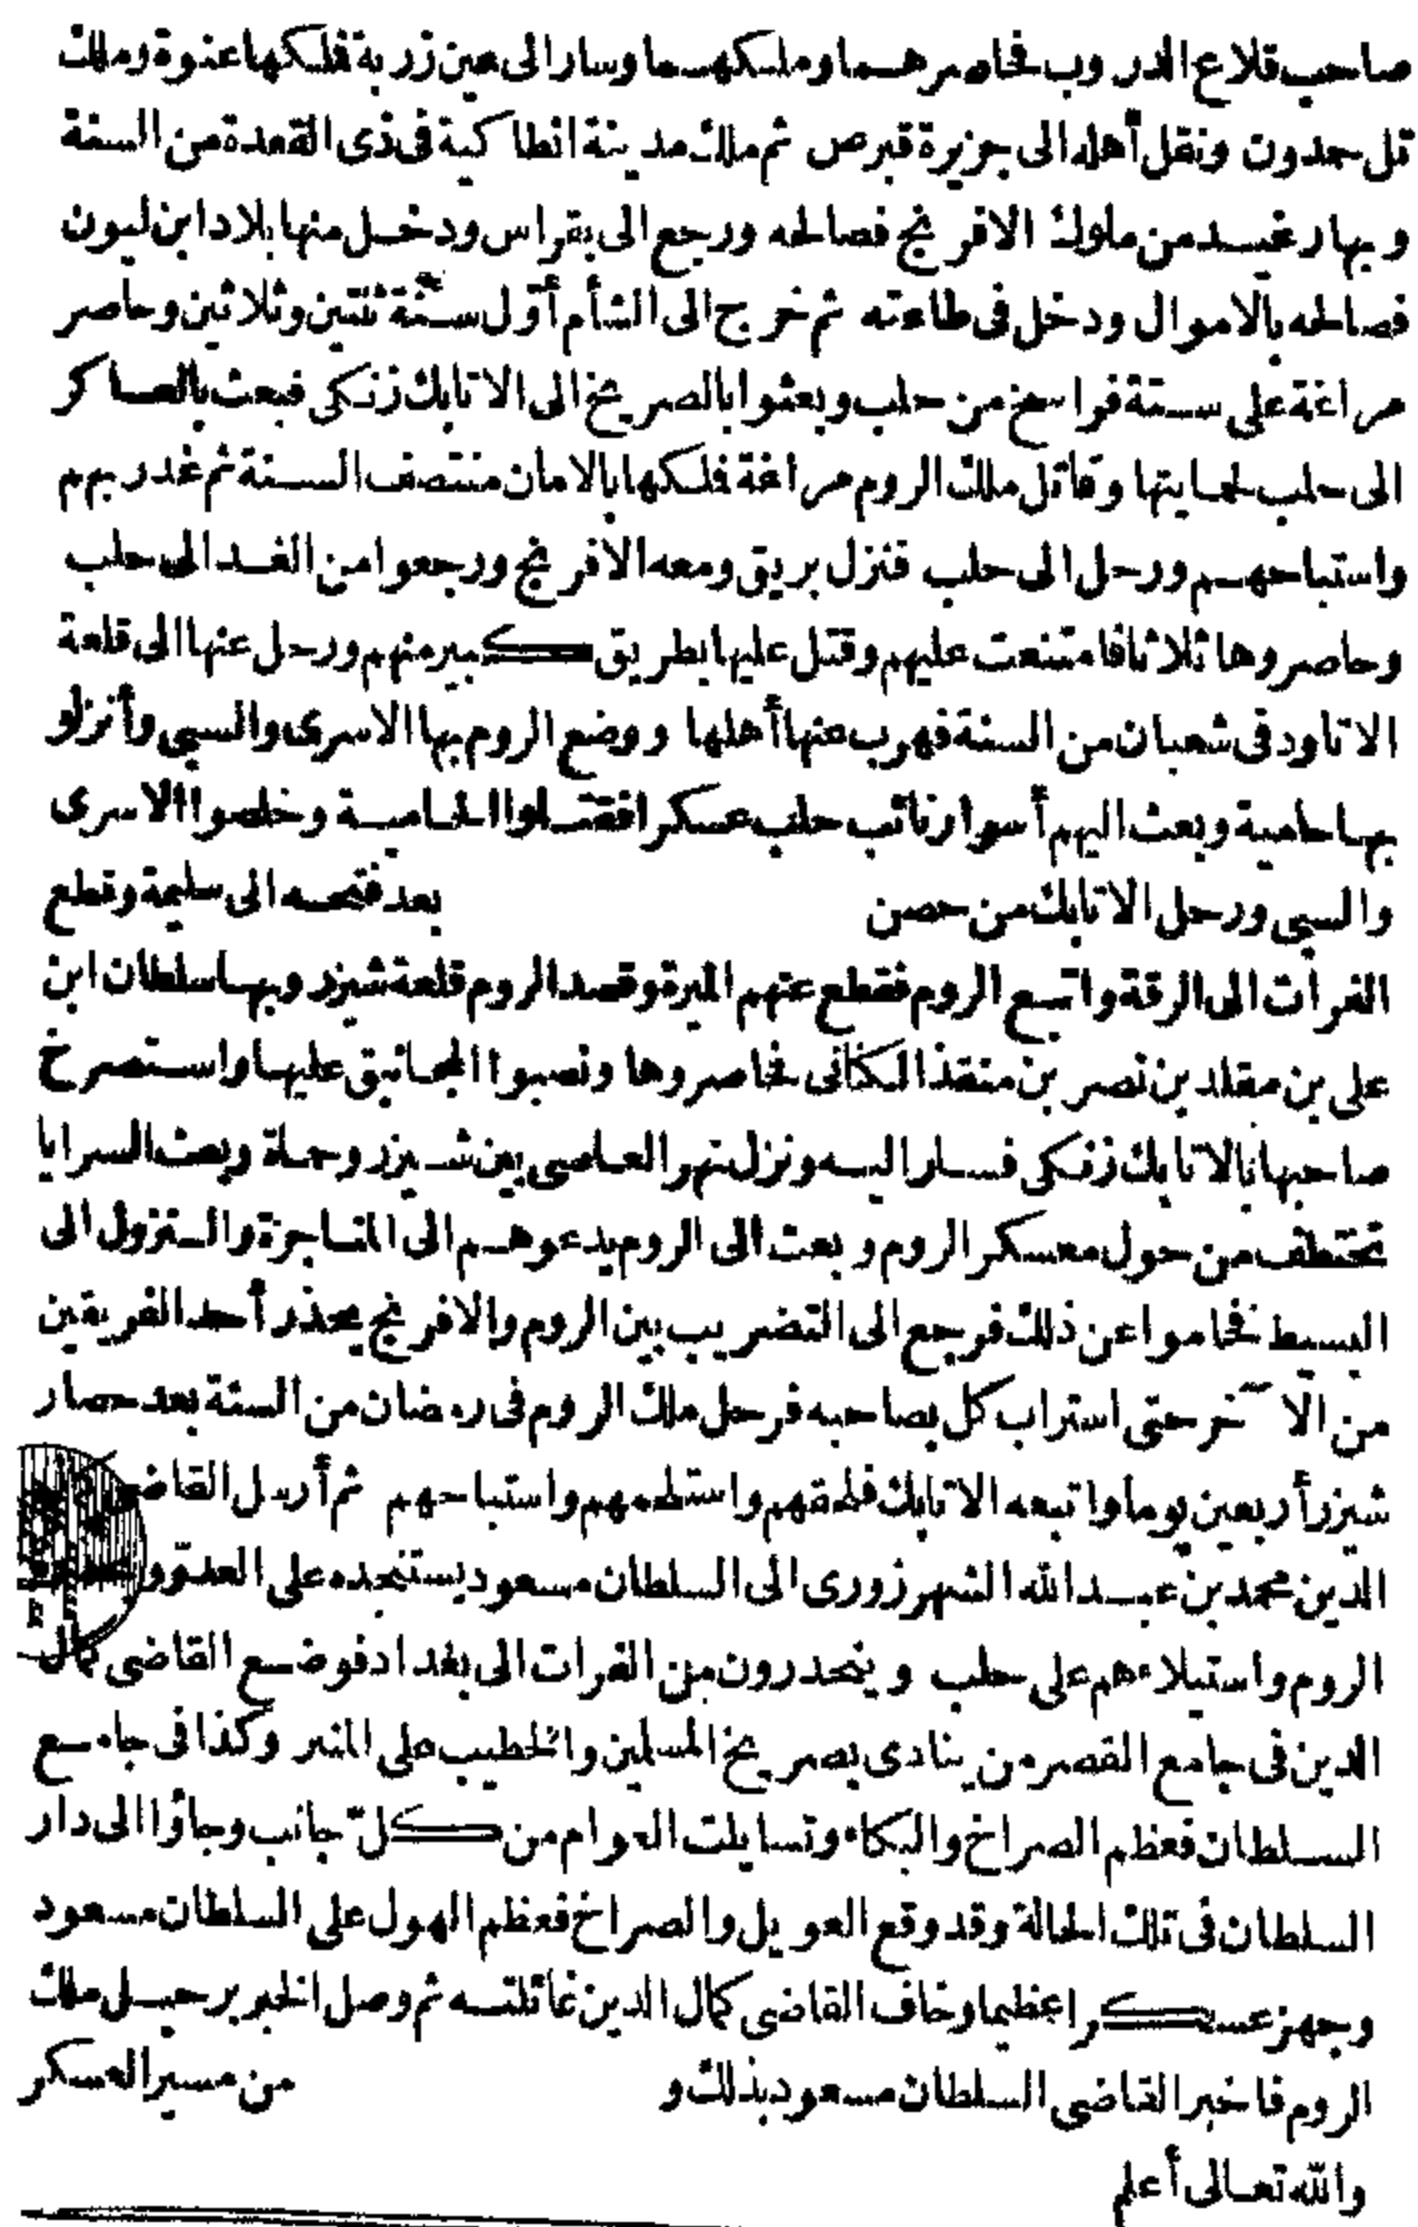 صاحب قلاع الدروب فحاصرهما وملكهما وسار الى عين زربة فملكها عنوة وملك
تل حمدون ونقل أهله الى جزيرة قبرص ثم ملك مدينة انطاكية فى ذى القعدة من السنة
وبها رغيد من ملوك الافرنج فصالحه ورجع الى بقراس ودخل منها بلاد ابن ليون
فصالحه بالاموال ودخل فى طاعته ثم خرج الى الشأم أوّل سنة ثنتين وثلاثين وحاصر
مراغة على ستة فراسخ من حلب وبعثوا بالصريخ الى الاتابك زنكى فبعث بالعساكر
الى حلب لحمايتها وقاتل ملك الروم مراغة فملكها بالامان منتصف السنة ثم غدر بهم
واستباحهم ورحل الى حلب فنزل بريق ومعه الافرنج ورجعوا من الغد الى حلب
وحاصروها ثلاثا فامتنعت عليهم وقتل عليها بطريق كبير منهم ورحل عنها الى قلعة
الاتاود فى شعبان من السنة فهرب عنها أهلها ووضع الروم بها الاسرى والسبى وأنزلو
بها حامية وبعث اليهم أسوار نائب حلب عسكرا فقتلوا الحامية وخلصوا الاسرى
والسبى ورحل الاتابك من حصن بعد فتحه الى سليمة وقطع
الفرات الى الرقة واتبع الروم فقطع عنهم الميرة وقصد الروم قلعة شيزر وبها سلطان ابن
على بن مقلد بن نصر بن منقذ الكنانى فحاصروها ونصبوا المجانيق عليها واستصرخ
صاحبها بالاتابك زنكى فسار اليه ونزل نهر العاصى بين شيزر وحماة وبعث السرايا
تختطف من حول معسكر الروم وبعث الى الروم يدعوهم الى المناجزة والنزول الى
البسيط فخاموا عن ذلك فرجع الى التضريب بين الروم والافرنج يحذر أحد الفريقين
من الآخر حتى استراب كل بصاحبه فرحل ملك الروم فى رمضان من السنة بعد حصار
شيزر أربعين يوما واتبعه الاتابك فلحقهم واستلحمهم واستباحهم ثم أرسل القاضى
الدين محمد بن عبد الله الشهرزورى الى السلطان مسعود يستنجده على العدوّ
الروم واستيلاءهم على حلب وينحدرون من الفرات الى بغداد فوضع القاضى كمال
الدين فى جامع القصر من ينادى بصريخ المسلمين والخطيب على المنبر وكذا فى جامع
السلطان فعظم الصراخ والبكاء وتسايلت العوام من كلّ جانب وجاؤا الى دار
السلطان فى تلك الحالة وقد وقع العويل والصراخ فعظم الهول على السلطان مسعود
وجهز عسكرا عظيما وخاف القاضى كمال الدين غائلته ثم وصل الخبر برحيل ملك
الروم فاخبر القاضى السلطان مسعود بذلك و من مسير العسكر
والله تعالى أعلم